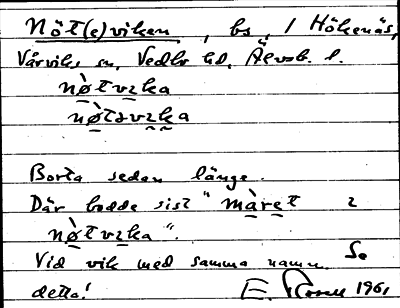 Nöt(e)viken, bs, / Hökenäs,
Vårviks sn, Vedbo hd, Älvsb. l.
nø̀tvika
nø̀tavika
Borta sedan länge.
Där bodde sist "màret i
nø̀tvika".
Vid vik med samma namn. Se
detta! E. Rosell 1961